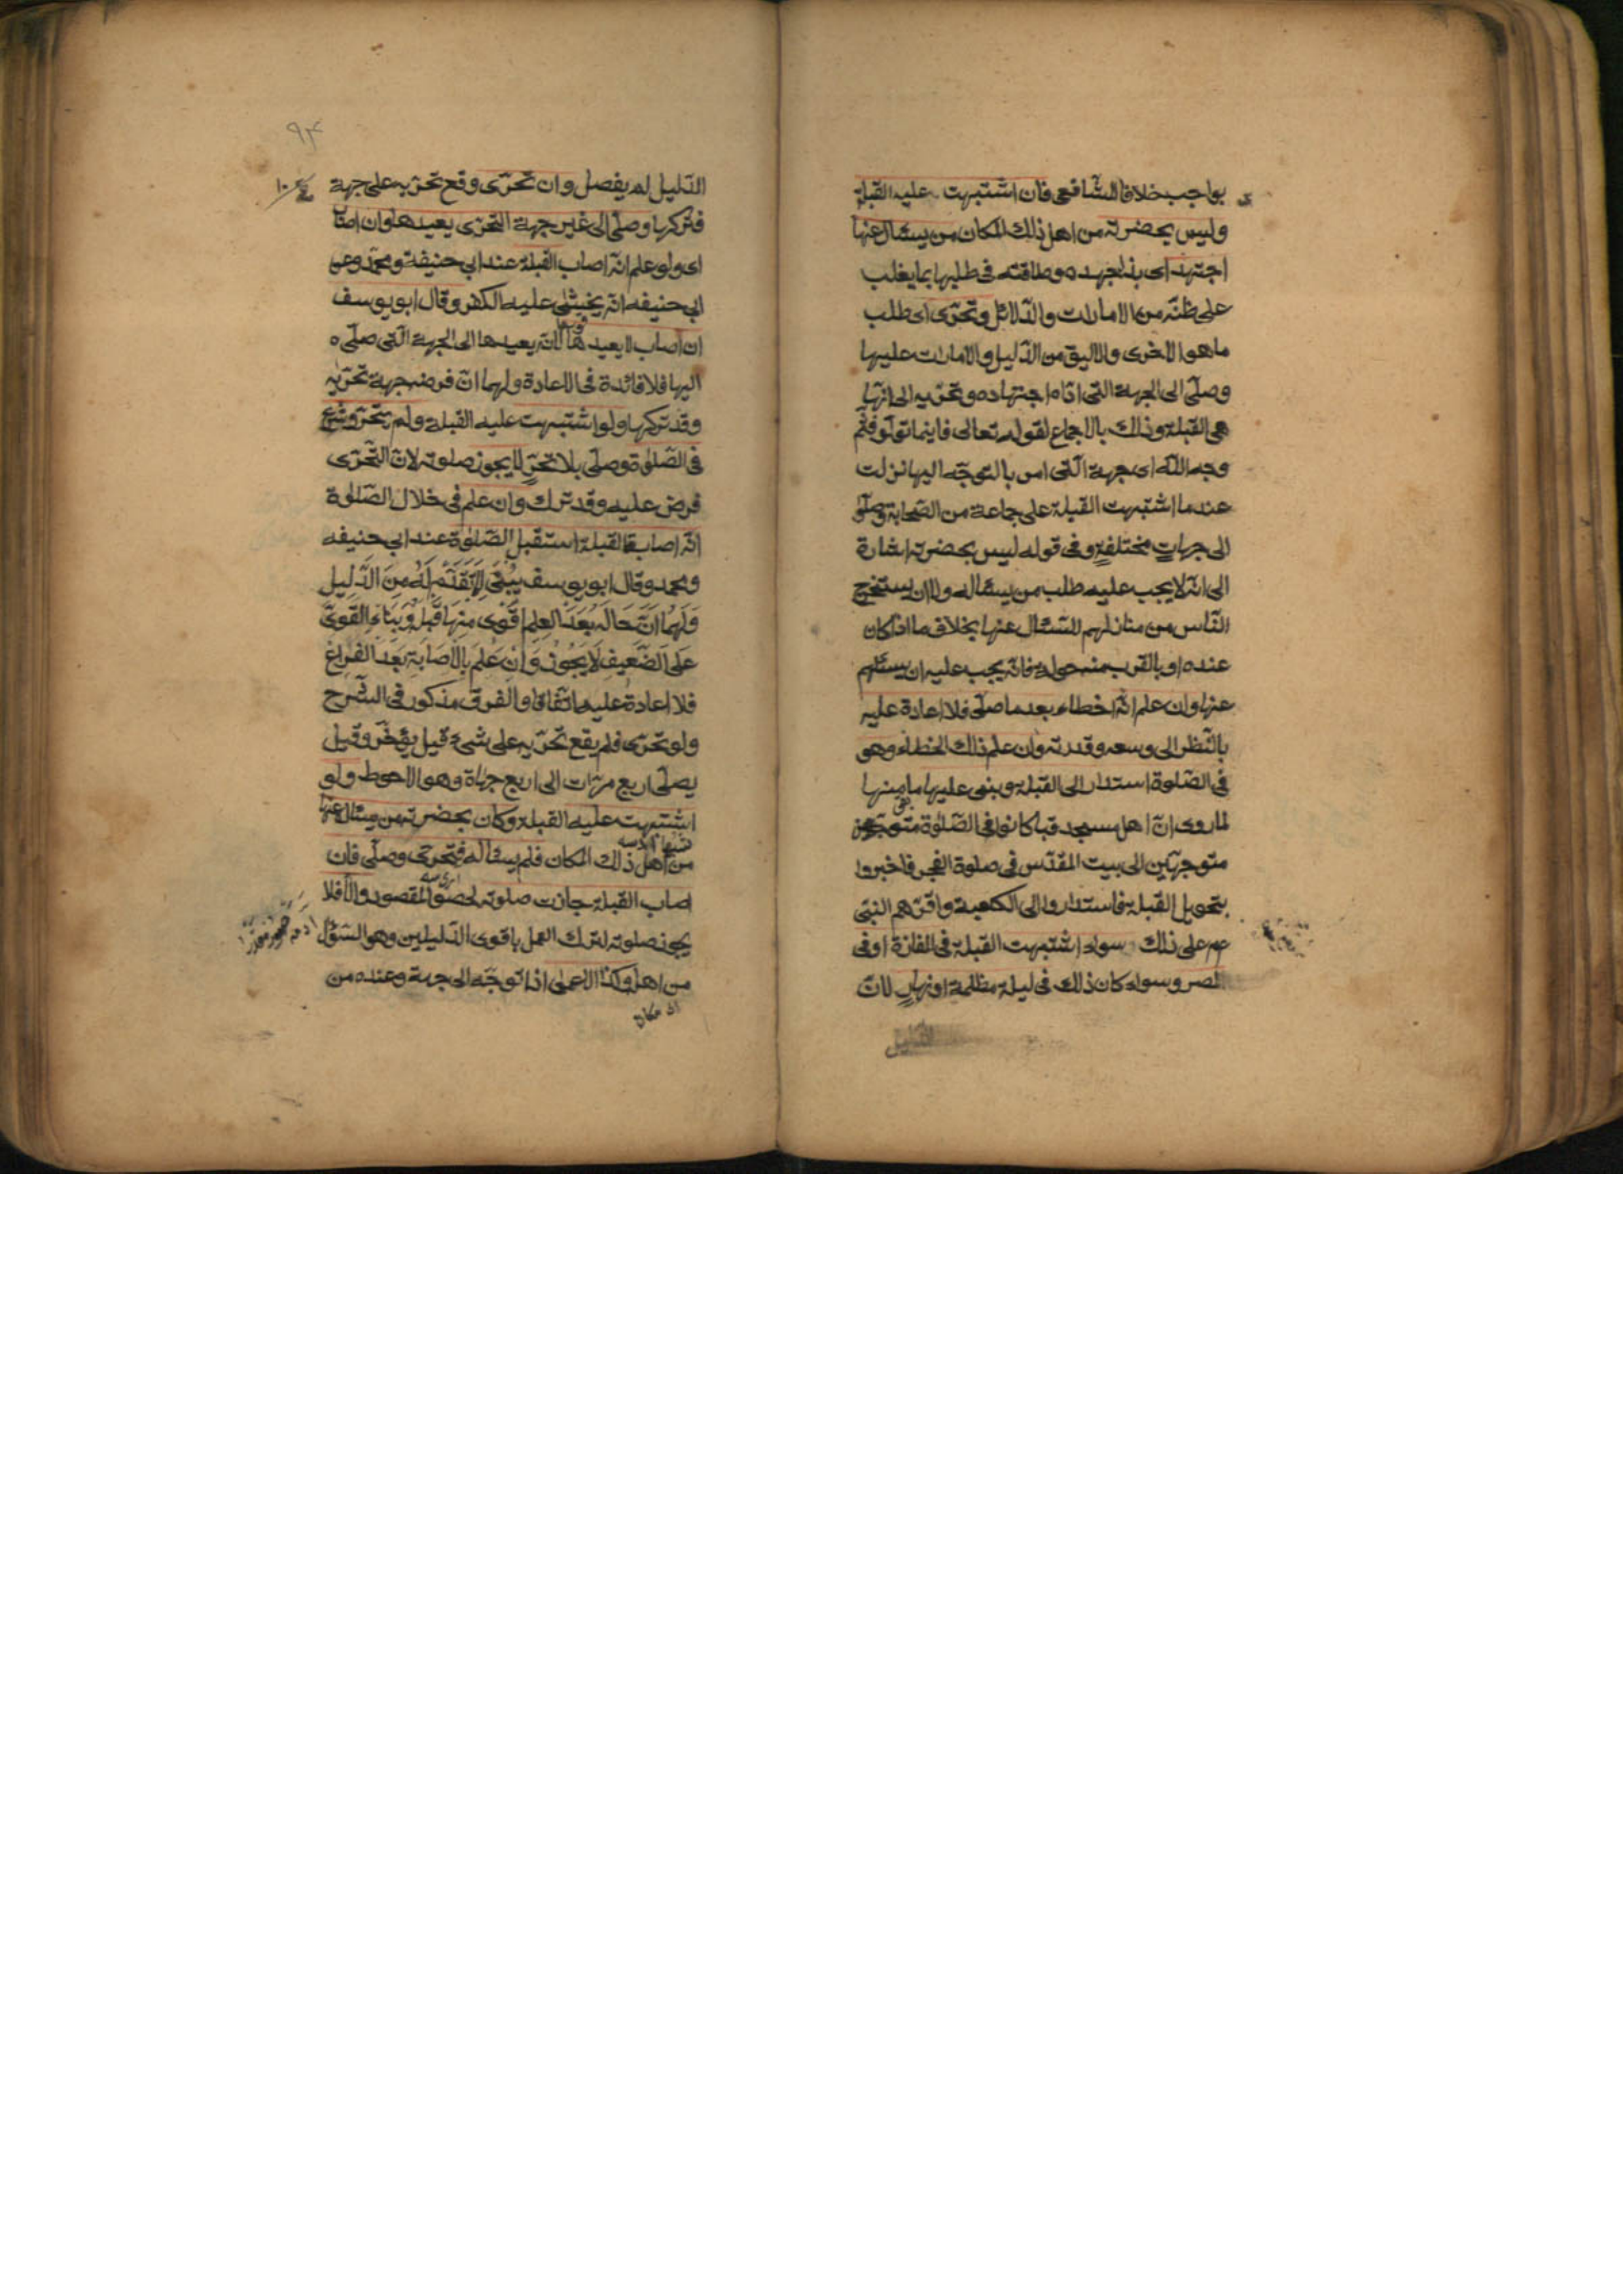 بواجب خلافا للشافعى فان اشتبهت عليه القبلة
وليس بحضرته من اهل ذلك المكان من يسئال عنها
اجتهد اى بذل جهده وطاقته فى طلبها بما يغلب
على ظنّه من الامارات والدّلائل وتحرّى اى طلب
ما هو الاخرى والاليق من الدّليل والامارات عليها
وصلّى الى الجهة التى ادّاه اجتهاده وتحرّيه الى انّها
هى القبلة وذلك بالاجماع لقوله تعالى فاينما تولّو فثمّ
وجه اللّه اى جهة الّتى امر بالتوجّه اليها نزلت
عندما اشتبهت القبلة على جماعة من الصّحابة وصلّو
الى جهات مختلفةٍ وفى قوله ليس بحضرته اشارة
الى انّه لا يجب عليه طلب من يسئاله ولا ان يستخرج
النّاس من منازلهم للسّئال عنها بخلاف ما اذا كان
عنده او بالقرب منه حوله فانّه يجب عليه ان يسئلهم
عنها وان علم انّه اخطاء بعد ما صلّى فلا اعادة عليه
بالنّظر الى وسعه وقدرته وان علم ذلك الخطاء وهو
فى الصّلوة استدار الى القبلة وبنى عليها ما بقى منها
لما روى انّ اهل مسجد قبا كانوا فى الصّلوة
متوجهّين الى بيت المقدّس فى صلوة الفجر فاخبروا
بتحويل القبلة فاستداروا الى الكعبة واقرّهم النبىّ
عم على ذلك سواء اشتبهت القبلة فى المفازة او فى
المصر وسواء كان ذلك فى ليلة مظلمة او نهارٍ لانّ
الدّليل
٩٤
الدّليل لم يفصل وان تحرّى وقع تحرّيه على جهة
فتركها وصلّى الى غير جهة التحرّى يعيدها وان اصاب
اى ولو علم انّه اصاب القبلة عند ابى حنيفة ومحمّد وعن
ابى حنيفه انّه يخشى عليه الكفر وقال ابو يوسف
ان اصاب لا يعيدها لانّه يعيدها الى الجهة الّتى صلّى
اليها فلا فائدة فى الاعادة ولهما انّ فرضه جهة تحرّيه
وقد تركها ولو اشتبهت عليه القبلة ولم يتحرّ وشرع
فى الصّلوة وصلّى بلا تحرٍّ لا يجوز صلوته لانّ التّحرّى
فرض عليه وقد ترك وان علم فى خلال الصّلوة
انّه اصاب القبلة استقبل الصّلوة عند ابى حنيفه
ومحمد وقال ابو يوسف يَبْنى لِمَا تَقَدَّمَ لَهُ مِنَ الدَّلِيل
وَلَهُمَا اَنَّ حَالَهُ بَعْدَ العِلمِ اَقْوَى مِنْهَا قَبْلَهُ وَبِنَاءِ القَوِىّ
عَلَى الضَّعِيفِ لَا يَجُوزُ وَاِنْ عَلِمَ بِالاَصَابَةِ بَعْدَ الفَرَاغ
فلا اعادة عليه اتّفاقا والفرق مذكور فى الشّرح
ولو تحرّى فلم يقع تحرّيه على شىء قيل يؤخّر وقيل
يصلّى اربع مرّات الى اربع جهاة وهو الاحوط ولو
اشتبهت عليه القبلة وكان بحضرته من يسئال عنها
من اهل ذلك المكان فلم يسئاله فتحرّى وصلّى فان
اصاب القبلة جازت صلوته لحصول المقصود والّا فلا
يجوز صلوته لترك العمل باقوى الدّليلين وهو السّؤال
من اهل وكذا الاعمى اذا توجّه الى جهة وعنده من